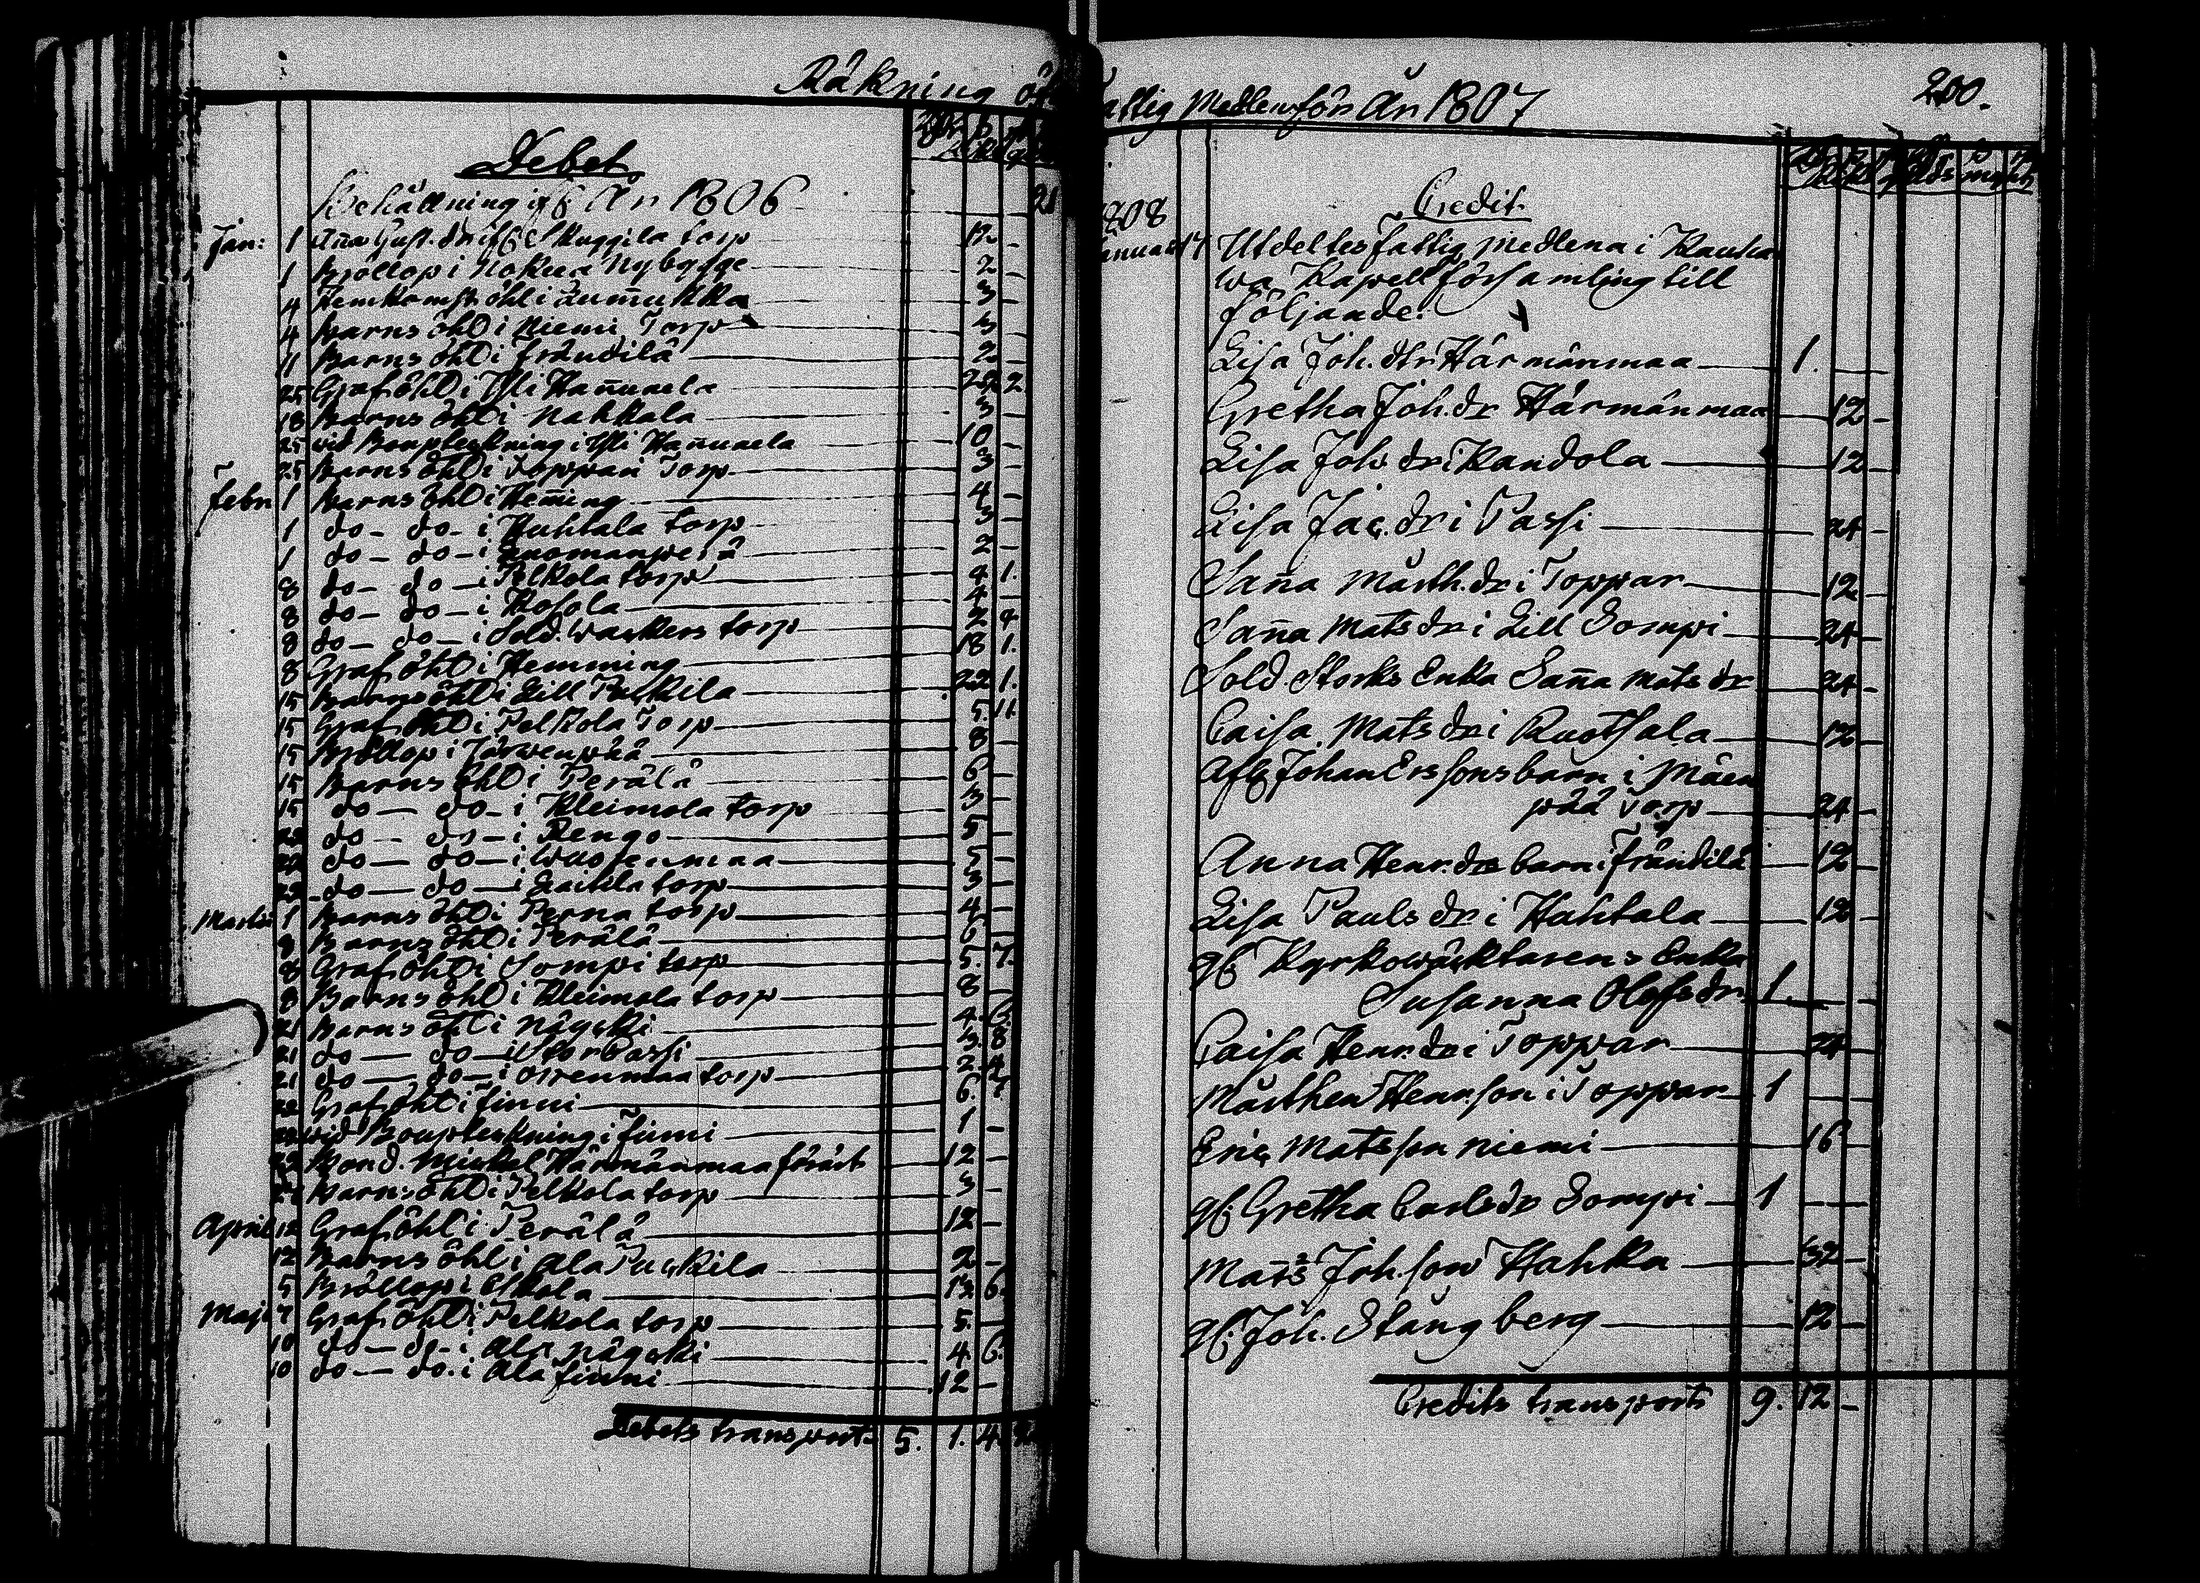 Räkning
Debet
Behållning ifr. År 1806 21
Jan: 1 Anna Gust. dr ifr. Skuggila torp 12 -
1 Bröllop i Nybygge 2 -
4 Hemkomst öhl i 3 -
4 Barns öhl i Niemi Torp 3 -
11 Barns öhl i Frändilä 2 -
25 Graföhl i Yli Hannuaela 2
18 Barns öhl i Nahkala 3 -
25 vid i Yli Hannuaela 10 -
25 Barns öhl i Toppari Torp 3 -
Febr 1 Barns öhl i Hemming 4 -
1 do - do - i Huhtala torp 3 -
1 do - do - i Luomanperä 2 -
8 do - do - i Pelkola torp 4 1.
8 do - do - i Kosola 4 -
8 do - do - i Sold. Wackers torp 2 4
8 Graföhl i Hemming 18 1.
15 Barns öhl i Lill Puckila 22 1.
15 Graföhl i Pelkola Torp 5. 11
15 Bröllop i Järwenpää 8 -
15 Barns öhl i Perälä 6 -
15 do - do - i Kleimola torp 3 -
22 do - do - i Rengo 5 -
22 do - do - i 5 -
22 do - do - i torp 3 -
Martii 1 Barns öhl i Perna torp 4 -
8 Barns öhl i Perälä 6 -
8 Graföhl i Sompi torp 5. 7.
8 Barns öhl i Kleimola torp 8 -
21 Barns öhl i Näycki 4. 6.
21 do - do - i Stor Passi 3. 8
21 do - do - i Orrenmaa torp 2. 4
22 Graföhl i Finni 6. 7
vid i Finni 1 -
Bond. Mickel Härmänmaa förärt 12 -
Barns öhl i Pelkola torp 3 -
April 12 Graföhl i Perälä 12 -
12 Barns öhl i Ala Puckila 2 -
5 Bröllop i Eskola 13. 6.
Maji 7 Graföhl i Pelkola torp 5. -
10 do - do - i Ala Näycki 4. 6.
10 do - do. i Ala Finni 12 -
Debets transport 5. 1. 4.
Fattig Medlen för År 1807
200.
Credit
1808
Januari 17 Utdeltes fattig medlena i Kauha
wa Kapell församling till
följande.
Lisa Joh. dtr Härmänmaa 1. -
Gretha Joh. dr Härmänmaa 12 -
Lisa Joh. dr i Kandola 12 -
Lisa Jac. dr i Passi 24 -
Sanna Märth. dr i Toppar 12 -
Sanna Mats dr i Lill Sompi 24 -
Sold. Storks Enka Sanna Mats dr 24 -
Caisa Mats dr i Ruotsala 12 -
Afl. Johan Erssons barn i Mäen
pää Torp 24 -
Anna Henr. drs barn i Frändilä 12 -
Lisa Pauls dr i Huhtala 12 -
gl. Kyrkowäktarens Enka
Susanna Olofsdr 1. - -
Caisa Henr. dr i Toppar 24 -
Mårthen Henr. son i Toppar 1 - -
Eric Matsson Niemi 16 -
gl. Gretha Carlsdr Sompi 1 - -
Mats Joh. son Hahka 32 -
gl. Joh. Stångberg 12 -
Credits transport 9. 12 -